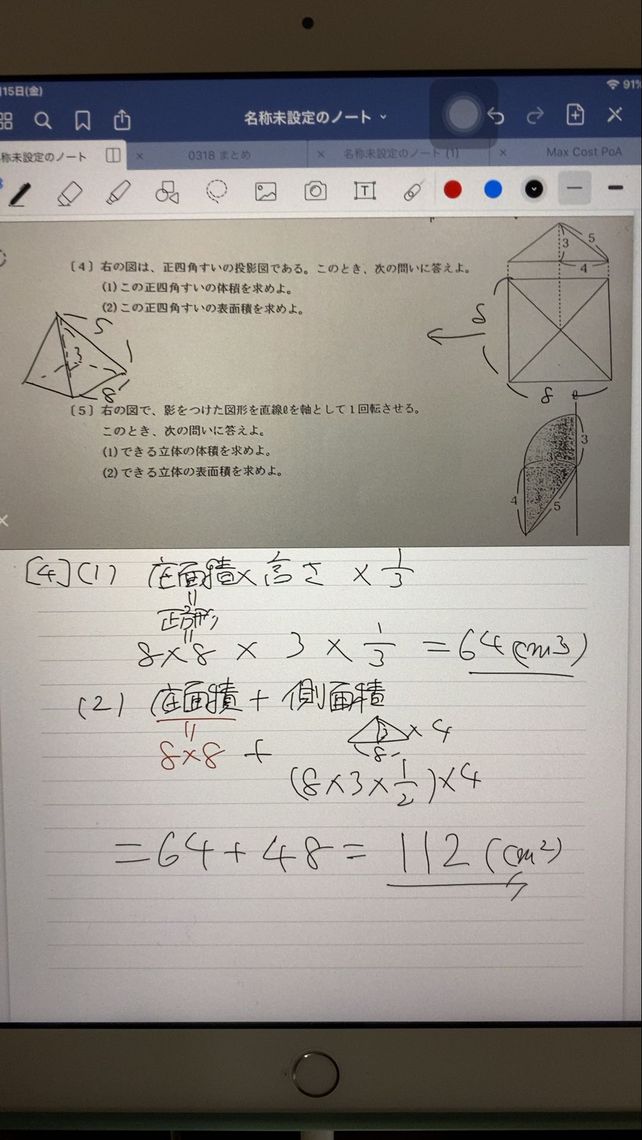 15日(金)
91%
名称未設定のノート
称未設定のノート
0318 まとめ
名称未設定のノート (1)
Max Cost PoA
T
〔4〕右の図は、正四角すいの投影図である。このとき、次の問いに答えよ。
(1)この正四角すいの体積を求めよ。
(2)この正四角すいの表面積を求めよ。
3
5
4
8
8
5
3
8
〔5〕右の図で、影をつけた図形を直線ℓを軸として1回転させる。
このとき、次の問いに答えよ。
(1)できる立体の体積を求めよ。
(2)できる立体の表面積を求めよ。
ℓ
3
3
4
5
[4](1) 底面積×高さ × 1/3
=
正方形
=
8×8 × 3 × 1/3 = 64(cm3)
(2) 底面積 + 側面積
=
3 × 4
8
8×8 +
(8×3×1/2)×4
=64+48= 112(cm²)